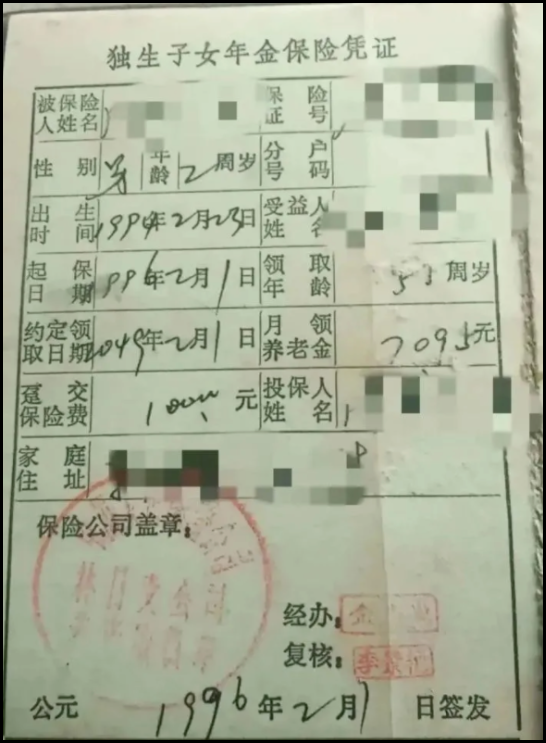 独生子女年金保险凭证
被保险人姓名 保险证号
性别 男 年龄 2周岁 分户号码
出生时间 1994年2月23日 受益人姓名
起保日期 1996年2月1日 领取年龄 55周岁
约定领取日期 2049年2月1日 月领养老金 7095元
趸交保险费 1000元 投保人姓名
家庭住址
保险公司盖章：
经办：
复核：
公元 1996年2月1日签发